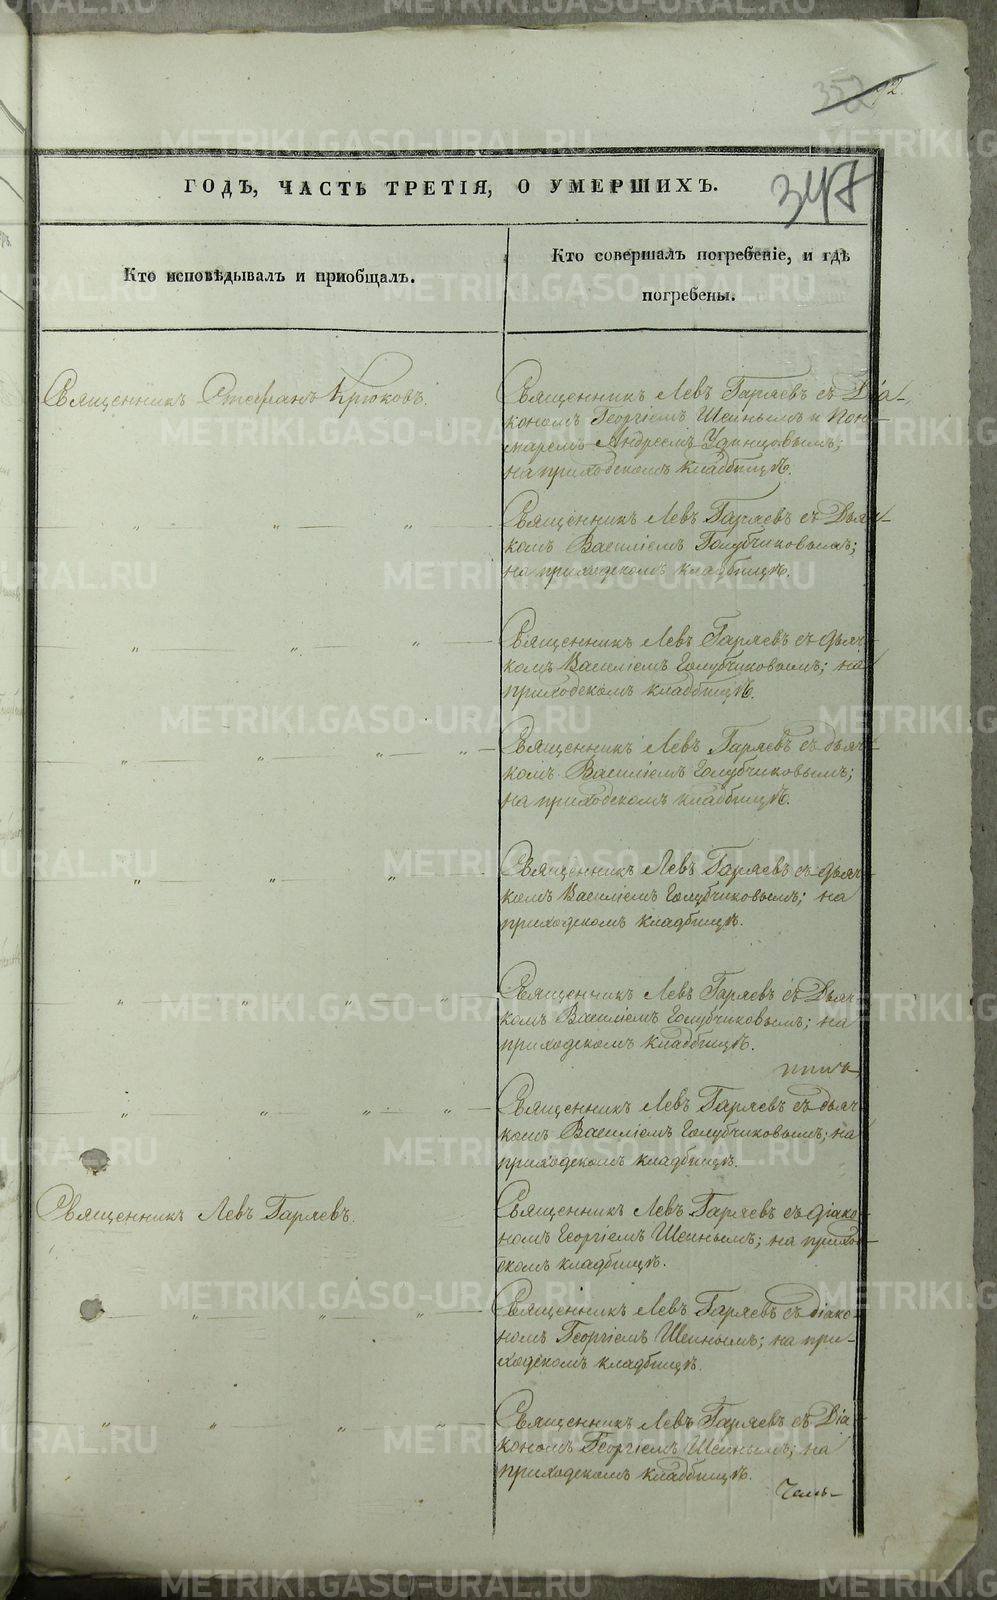 352 92.
347
ГОДЪ, ЧАСТЬ ТРЕТІЯ, О УМЕРШИХЪ.
Кто исповѣдывалъ и пріобщалъ.
Кто совершалъ погребеніе, и гдѣ
погребены.
Священникъ Стефанъ Крюковъ.
Священникъ Левъ Гаряевъ съ Діа-
кономъ Георгіемъ Шеинымъ и Поно-
маремъ Андреемъ Удинцовымъ;
на приходскомъ кладбищѣ.
— " — " — " —
Священникъ Левъ Гаряевъ съ Дьяч-
комъ Василіемъ Голубчиковымъ;
на приходскомъ кладбищѣ.
— " — " — " —
Священникъ Левъ Гаряевъ съ дьяч-
комъ Василіемъ Голубчиковымъ; на
приходскомъ кладбищѣ.
— " — " — " — " —
Священникъ Левъ Гаряевъ съ дьяч-
комъ Василіемъ Голубчиковымъ;
на приходскомъ кладбищѣ.
— " — " — " —
Священникъ Левъ Гаряевъ съ дьяч-
комъ Василіемъ Голубчиковымъ; на
приходскомъ кладбищѣ.
— " — " — " — " —
Священникъ Левъ Гаряевъ съ Дьяч-
комъ Василіемъ Голубчиковымъ; на
приходскомъ кладбищѣ.
— " — " — " — " —
Священникъ Левъ Гаряевъ съ дьяч-
комъ Василіемъ Голубчиковымъ; на
приходскомъ кладбищѣ.
Священникъ Левъ Гаряевъ.
Священникъ Левъ Гаряевъ съ діако-
номъ Георгіемъ Шеинымъ; на приход-
скомъ кладбищѣ.
— " — " — " —
Священникъ Левъ Гаряевъ съ діако-
номъ Георгіемъ Шеинымъ; на при-
ходскомъ кладбищѣ.
— " — " — " — " —
Священникъ Левъ Гаряевъ съ Діа-
кономъ Георгіемъ Шеинымъ; на
приходскомъ кладбищѣ.
METRIKI.GASO-URAL.RU